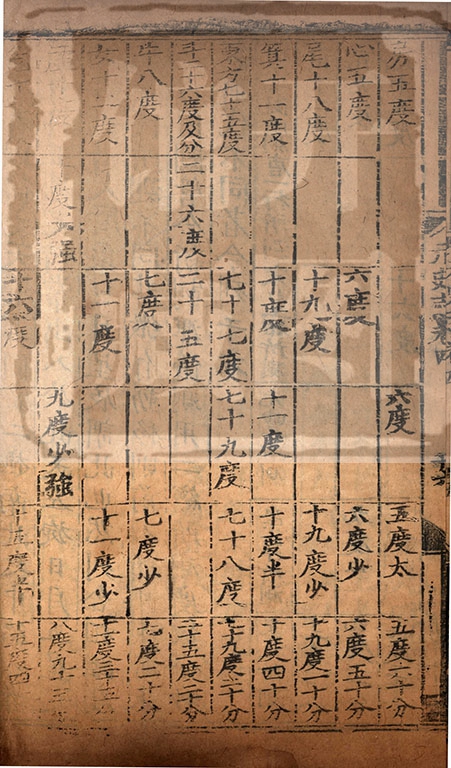 房五度 六度 五度太 五度六十分
心五度 六度 六度少 六度五十分
尾十八度 十九度 十九度少 十九度一十分
箕十一度 十度 十一度 十度半 十度四十分
東方七十五度 七十七度 七十九度 七十八度 七十九度二十分
斗二十六度及分 二十六度 二十五度 二十五度二十分
牛八度 七度 七度少 七度二十分
女十二度 十一度 十一度少 十一度
度 强 九度少強 八度九十五分
十六度 十五度半 十五度四